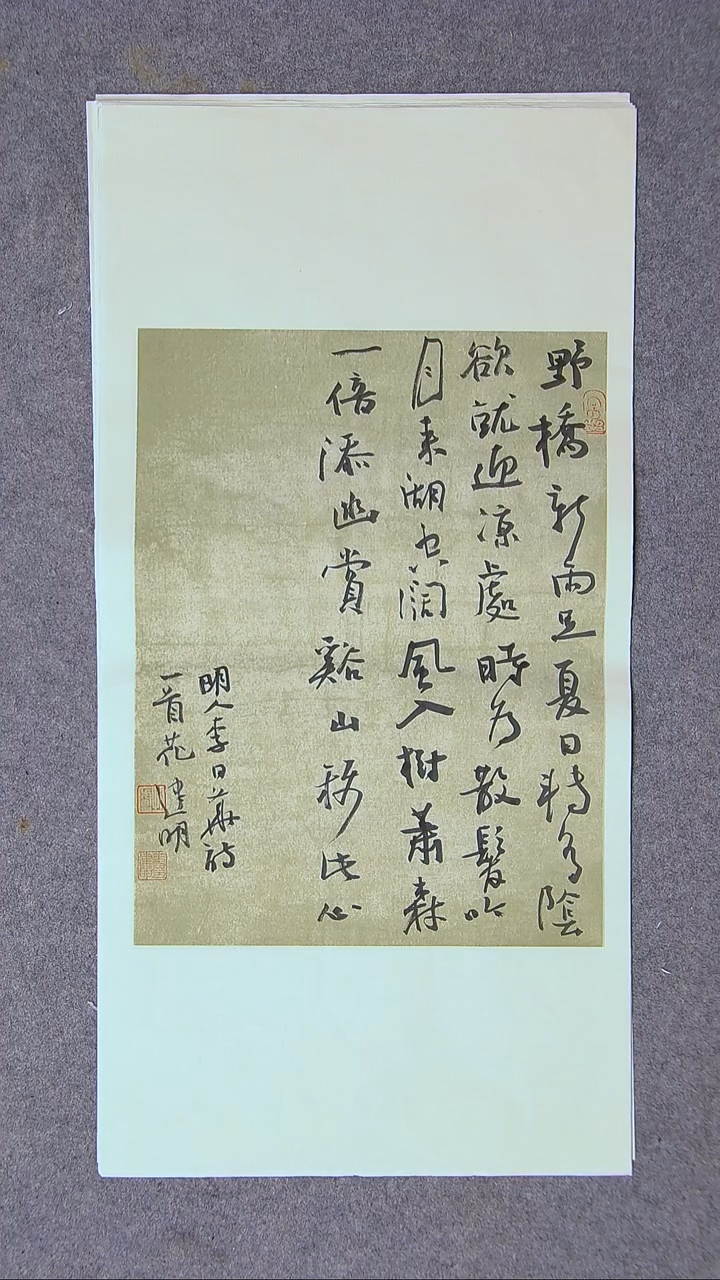 野橋新雨足夏日轉多陰
欲就迎涼處時為散髮吟
月来湖空闊風入樹蕭森
一倍添幽賞谿山称此心
明人李日華詩
一首花建明